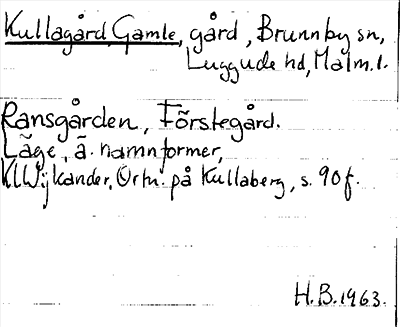 Kullagård, Gamle, gård, Brunnby sn,
Luggude hd, Malm. l.
Ransgården, Förstegård.
Läge, ä. namnformer,
KlWijkander, Ortn. på Kullaberg, s. 90 f.
H.B. 1963.